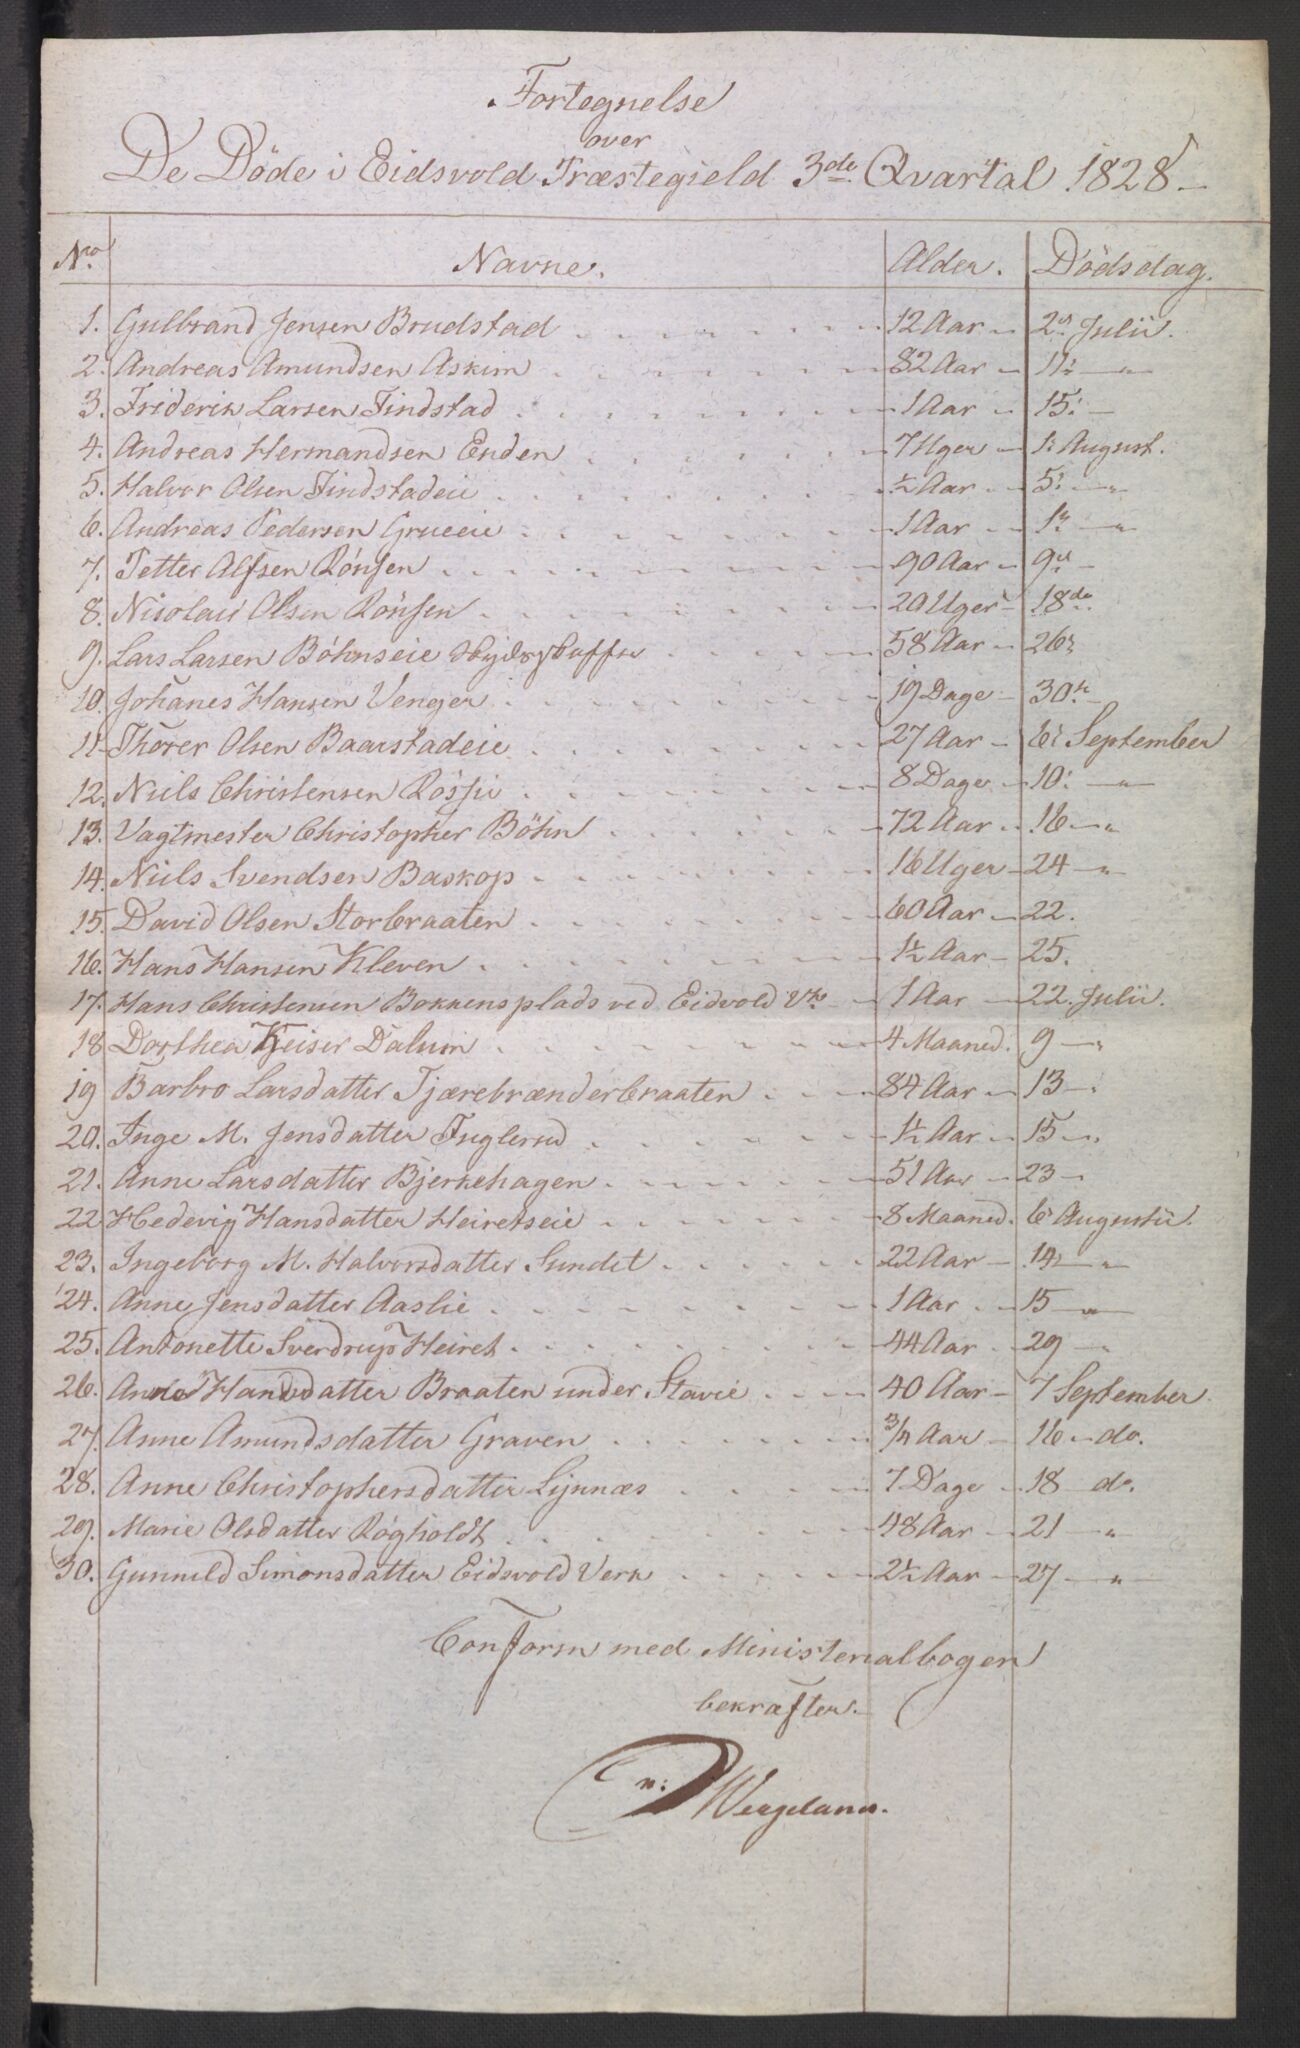 Fortegnelse
over
De Döde i Eidsvold Præstegield 3de Qvartal 1828
Nro Navne. Alder. Dödsdag.
1. Gulbrand Jensen Brudstad 12 Aar 2d Julii.
2. Andreas Amundsen Askim 82 Aar 11 "
3. Friderik Larsen Findstad 1 Aar 15
4. Andreas Hermandsen Enden 7 Uger 1: August.
5. Halvor Olsen Findstadeie ½ Aar 5 "
6. Andreas Pedersen Grueeie 1 Aar "
7. Petter Alfsen Rönsen 90 Aar 9
8. Nicolai Olsen Rönsen 20 Uger 18de
9. Lars Larsen Böhnseie 58 Aar 26
10. Johanes Hansen Venger 19 Dage 30
11. Thorer Olsen Baarstadeie 27 Aar 6 September
12. Niels Christensen 8 Dage 10: "
13. Vagtmester Christopher Böhn 72 Aar 16 "
14. Niels Svendsen Baskop 16 Uger 24 "
15. David Olsen Storbraaten 60 Aar 22.
16. Hans Hansen Kleven 1½ Aar 25.
17. Hans Christensen Bakkens plads ved Eidvold Vk 1 Aar 22. Julii.
18 Dorthea Keiser Dalum 4 Maaned. 9 "
19 Barbro Larsdatter Tjærebrænderbraaten 84 Aar 13
20. Inge M. Jensdatter Fuglerud 1½ Aar 15
21. Anne Larsdatter Bjerkehagen 51 Aar 23
22 Hedevig Hansdatter Heiretseie 8 Maaned. 6 Augustii.
23. Ingeborg M. Halvorsdatter Sundet 22 Aar 14 "
24. Anne Jensdatter Aaslie 1 Aar 15 "
25. Antonette Sverdrup Heiret 44 Aar 29 "
26. Hansdatter Braaten under Stavie 40 Aar 7 September
27. Anne Amundsdatter Graven ¾ Aar 16 do.
28. Anne Christophersdatter Lynnæs 7 Dage 18 do.
29. Marie Olsdatter Rögholdt 48 Aar 21 "
30. Gunnild Simonsdatter Eidsvold Verk 2½ Aar 27 "
Conform med Ministerialbogen
bekræfter.
N: Wergeland.